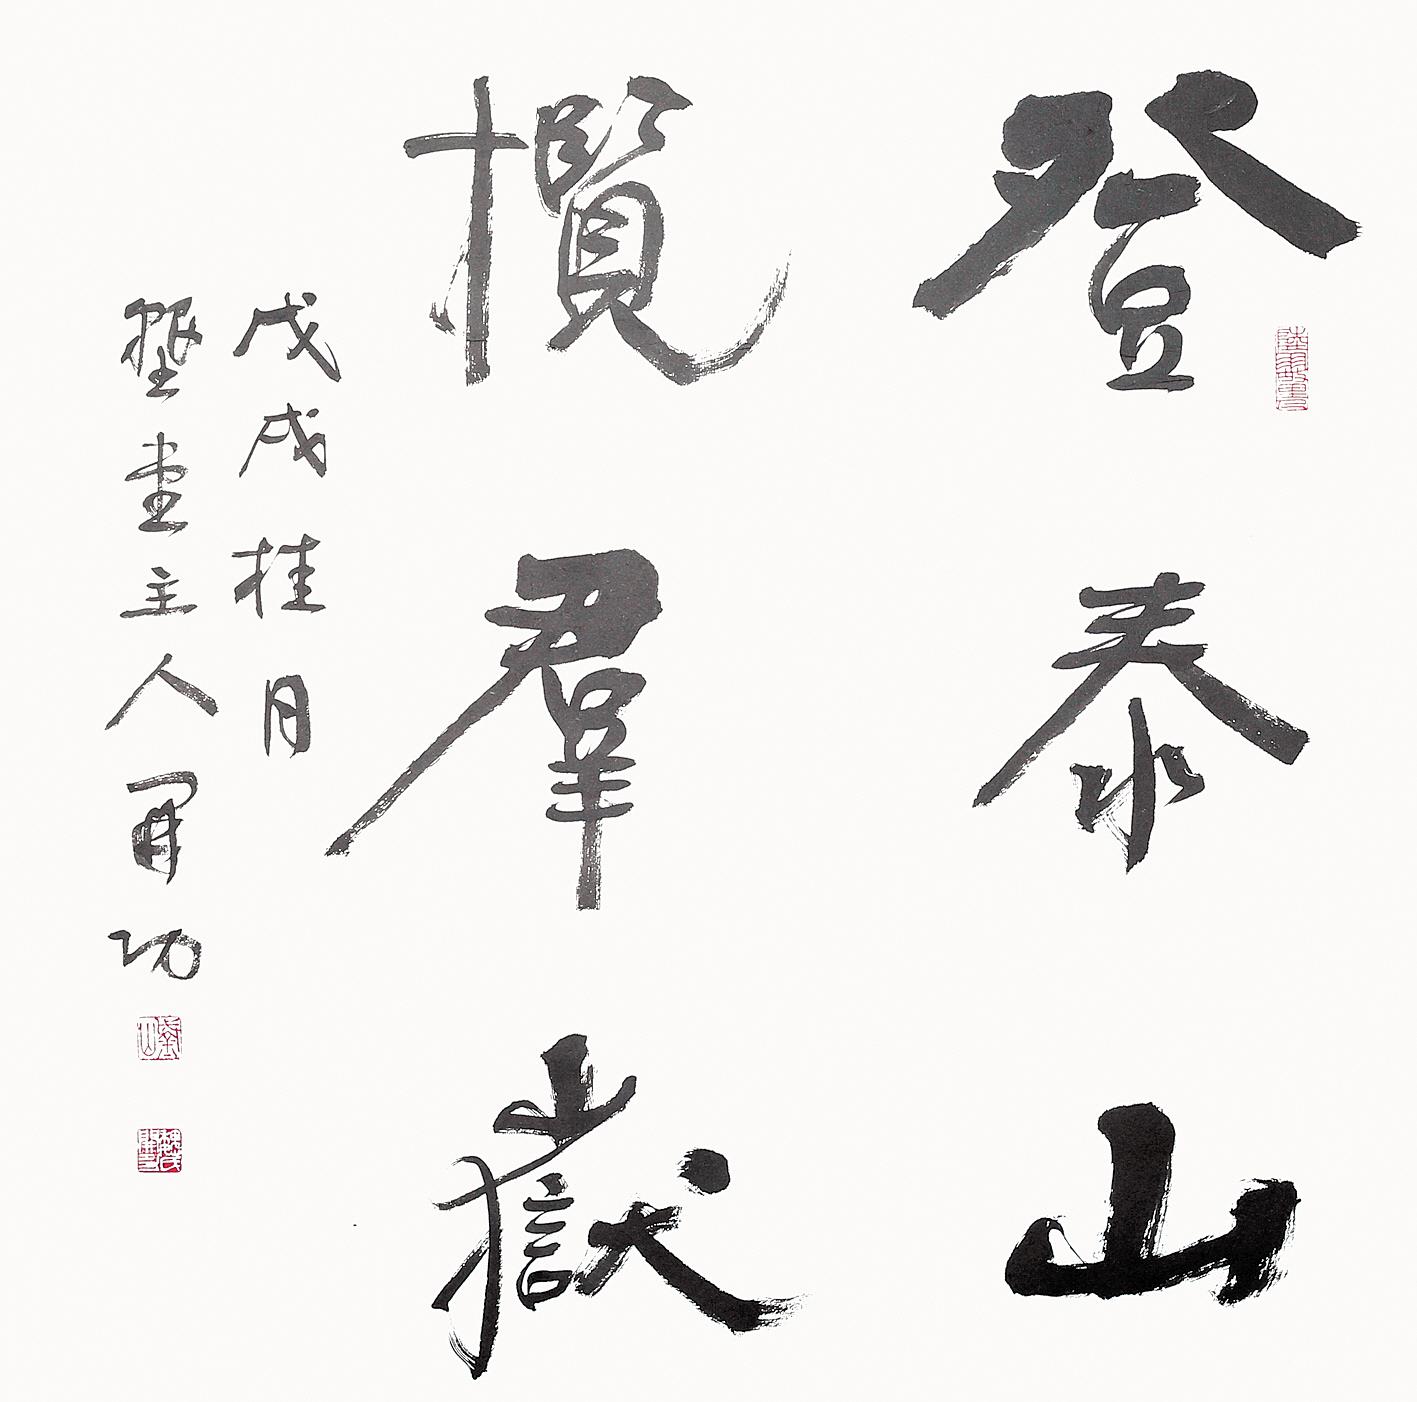 登泰山
攬羣嶽
戊戌桂月
堂主人開功